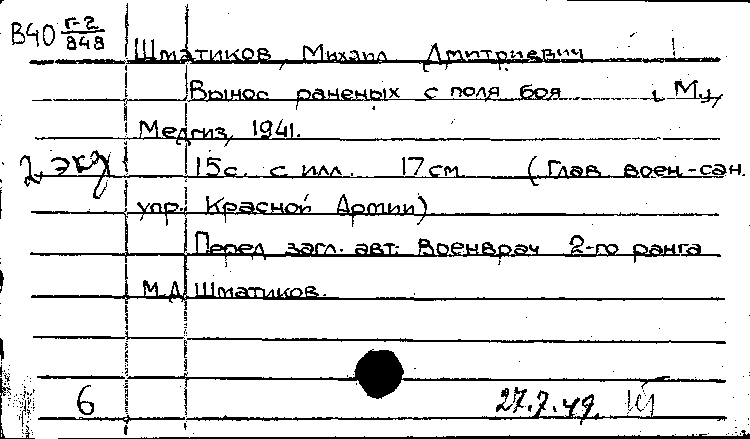 В40 Г-2/848
Шматиков, Михаил Дмитриевич
Вынос раненых с поля боя М.,
Медгиз, 1941.
2 экз
15с. с илл. 17см (Глав воен-сан.
упр. Красной Армии)
Перед загл. авт: Военврач 2-го ранга
М.Д. Шматиков.
6
27.7.49.